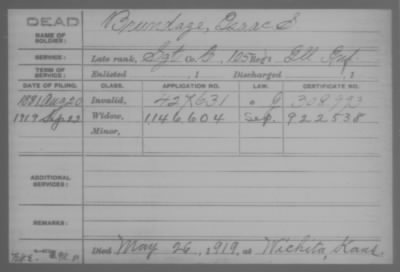 DEAD
NAME OF SOLDIER: Brundage, Isaac S
SERVICE: Late rank, Sgt Co. G, 125 Reg't Ill Inf.
TERM OF SERVICE: Enlisted , 1 Discharged , 1
DATE OF FILING. CLASS. APPLICATION NO. LAW. CERTIFICATE NO.
1881 Aug 20 Invalid, 427631 G 328993
1919 Sep 22 Widow, 1146604 Sep. 922538
Minor,
ADDITIONAL SERVICES:
REMARKS:
Died May 26, 1919, at Wichita, Kans.